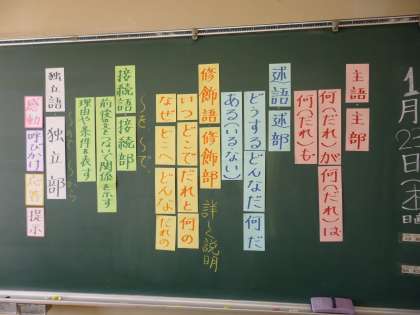 1月23日(木)
主語・主部
何(だれ)が 何(だれ)は
何(だれ)も
述語・述部
どうする どんなだ 何だ
ある(いる/ない)
修飾語・修飾部 詳しく説明
いつ どこで だれと 何の
なぜ どこへ どんな だれの
接続語・接続部
前後をつないで関係を示す
理由や条件を表す
独立語・独立部
感動 呼びかけ 応答 提示